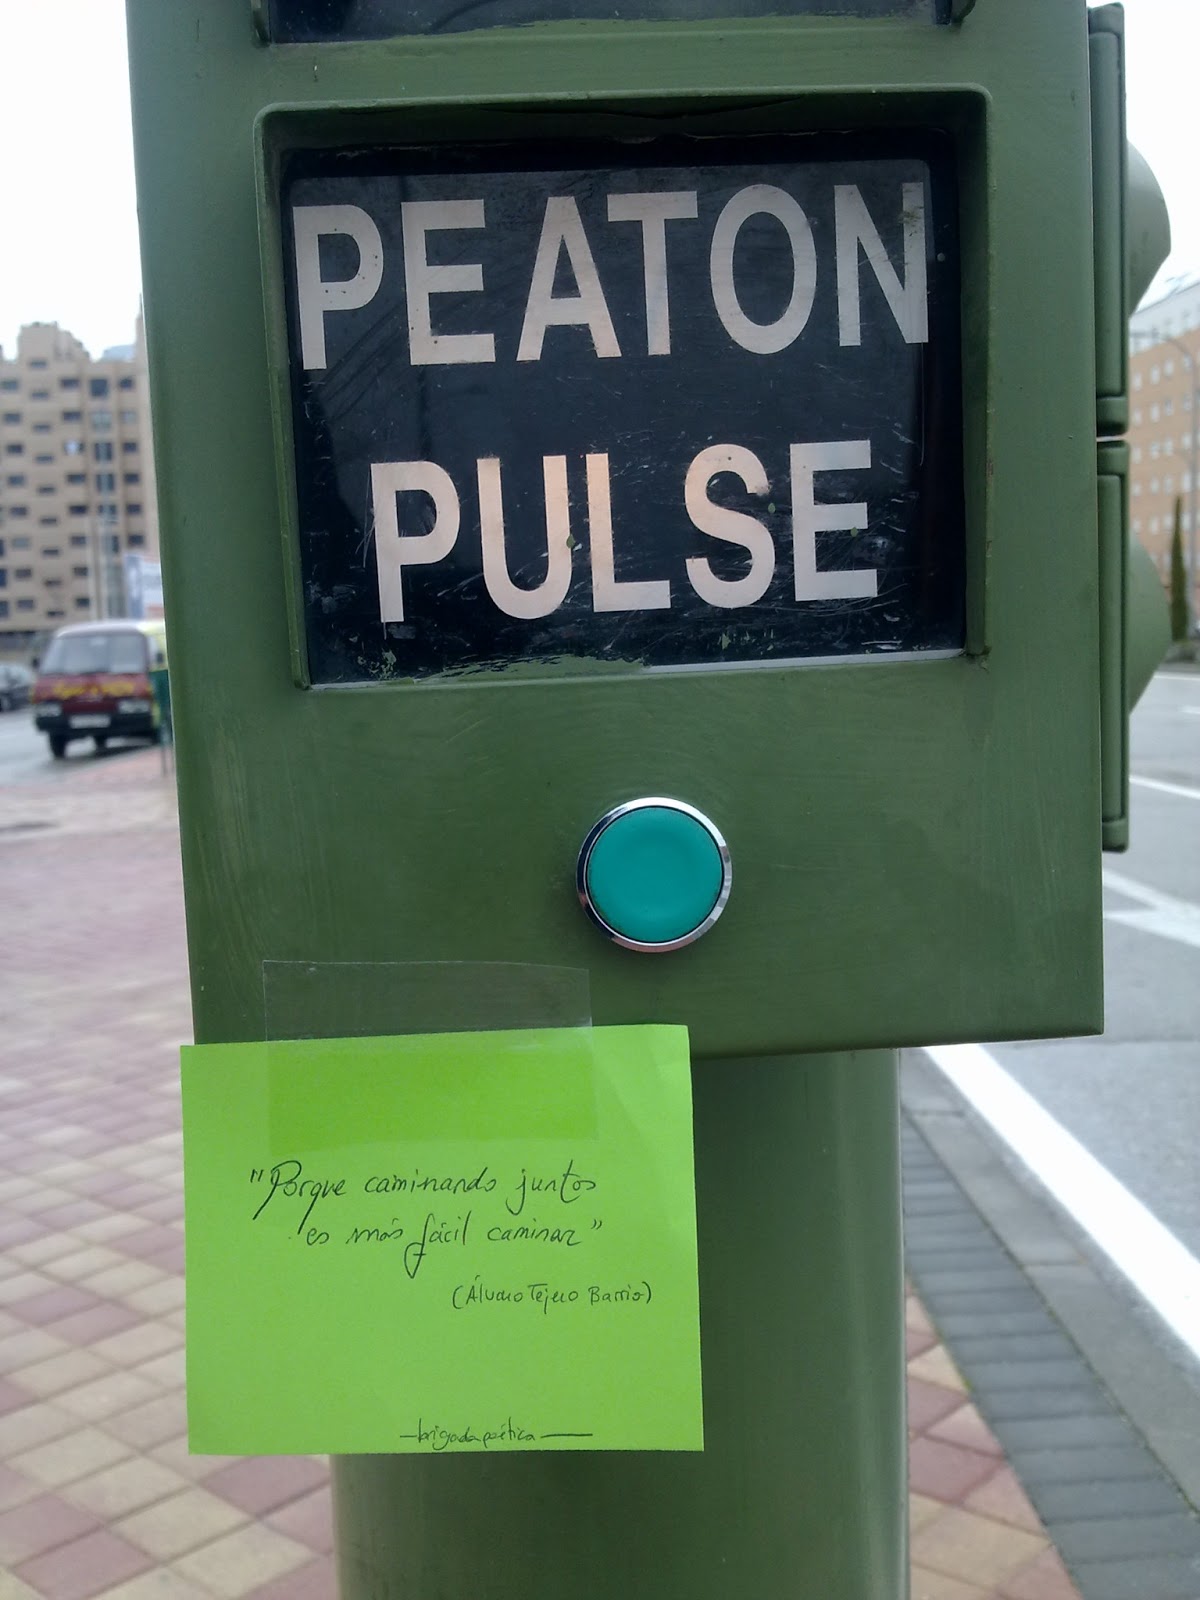 PEATON
PULSE
"Porque caminando juntos
es más fácil caminar"
(Álvaro Tejero Barrio)
—brigada poética—